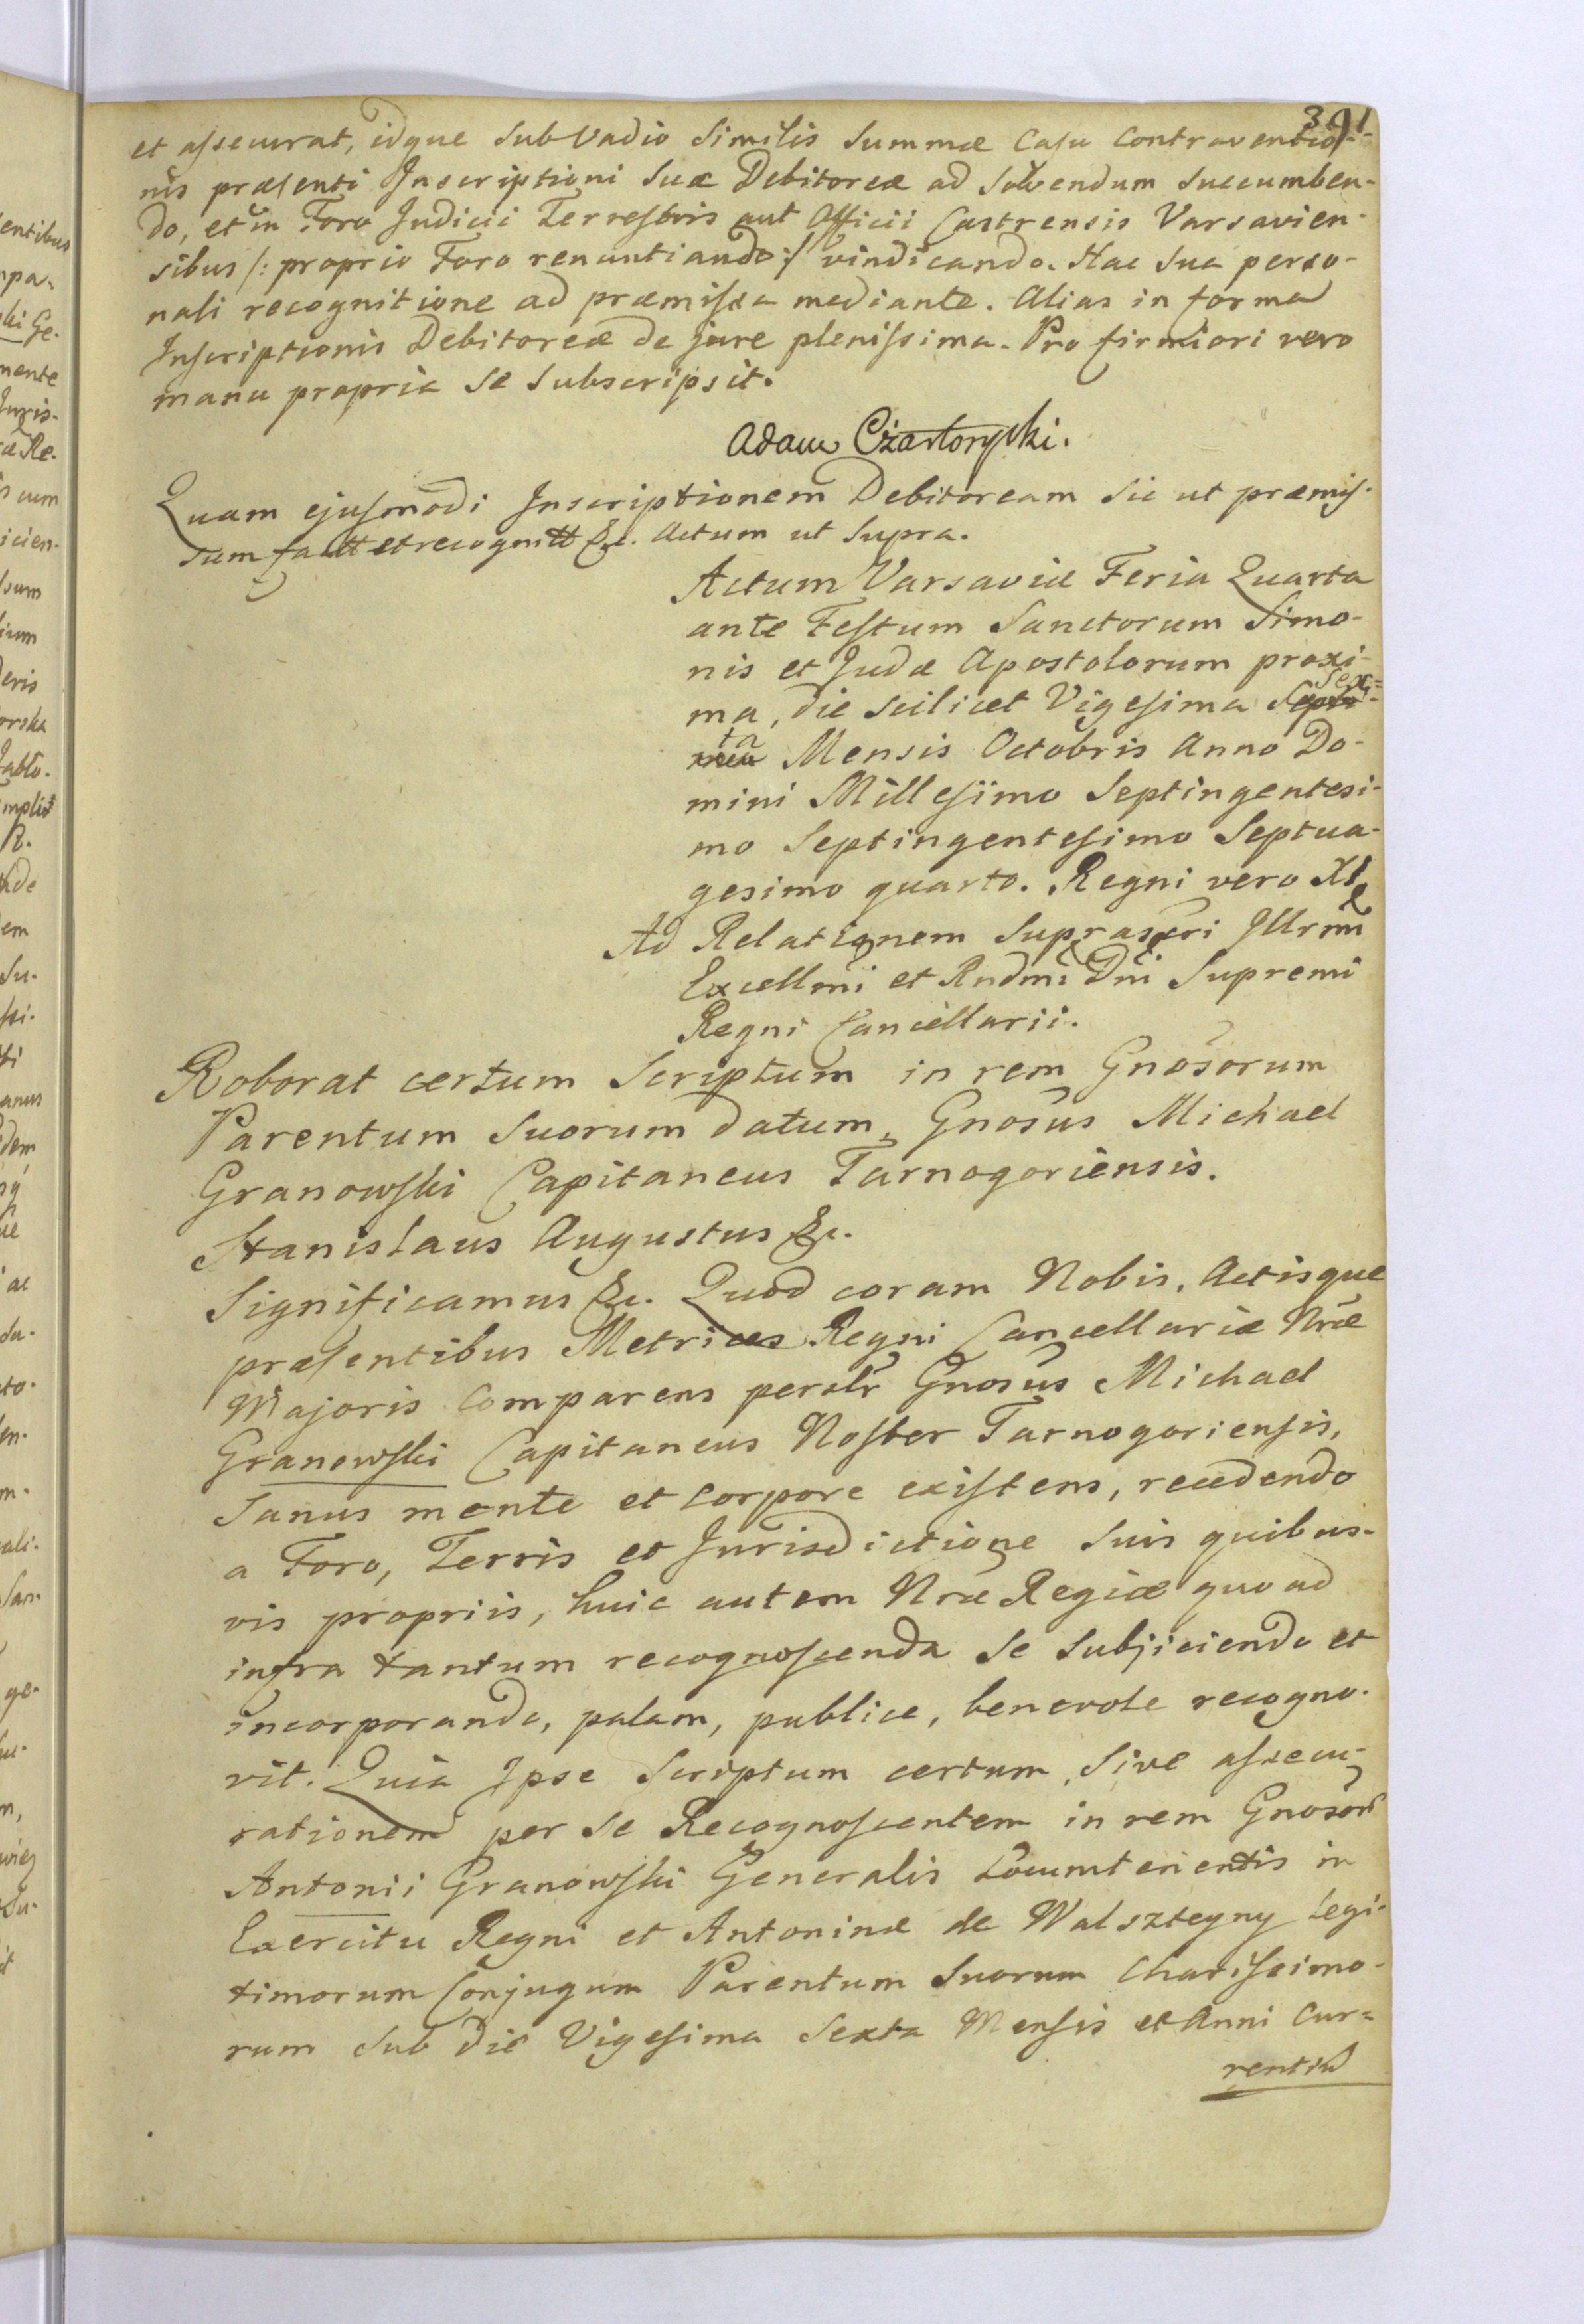 391
et assecurat, idque sub Vadio similis summæ Casu Contraventio-
nis præsenti Inscriptioni suæ Debitoreæ ad solvendum succumben-
do, et in Foro Judicii Terrestris aut Officii Castrensis Varsavien-
sibus /: proprio Foro renuntiando :/ vindicando. Hac sua perso-
nali recognitione ad præmissa mediante. Alias in forma
Inscriptionis Debitoreæ de jure plenissima. Pro firmiori vero
manu propria se subscripsit.
Adam Czartoryski.
Quam ejusmodi Inscriptionem Debitoream sic ut præmis-
sum factt et recognitt &c. Actum ut supra.
Actum Varsaviæ Feria Quarta
ante Festum Sanctorum Simo-
nis et Judæ Apostolorum proxi-
ma, die scilicet Vigesima Sex=
ta Mensis Octobris Anno Do-
mini Millesimo Septingentesi-
mo Septingentesimo Septua-
gesimo quarto. Regni vero XI
Ad Relationem suprascri Illrmi
Excellmi et Rndmi Dni Supremi
Regni Cancellarii.
Roborat certum Scriptum in rem Gnosorum
Parentum suorum datum, Gnosus Michael
Granowski Capitaneus Tarnogoriensis.
Stanislaus Augustus &c.
Significamus &c. Quod coram Nobis, Actisque
præsentibus Metrices Regni Cancellariæ Nræ
Majoris Comparens persolr Gnosus Michael
Granowski Capitaneus Noster Tarnogoriensis,
sanus mente et corpore existens, recedendo
a Foro, Terris et Jurisdictione suis quibus-
vis propriis, huic autem Nræ Regiæ quoad
infra tantum recognoscenda se subjiciendo et
incorporando, palam, publice, benevole recogno-
vit. Quia Ipse Scriptum certum, sive assecu-
rationem per se Recognoscentem in rem Gnosor
Antonii Granowski Generalis Locumtenentis in
Exercitu Regni et Antoninæ de Walsztegny legi-
timorum Conjugum Parentum suorum Charissimo-
rum sub die Vigesima Sexta Mensis et Anni Cur=
rentis